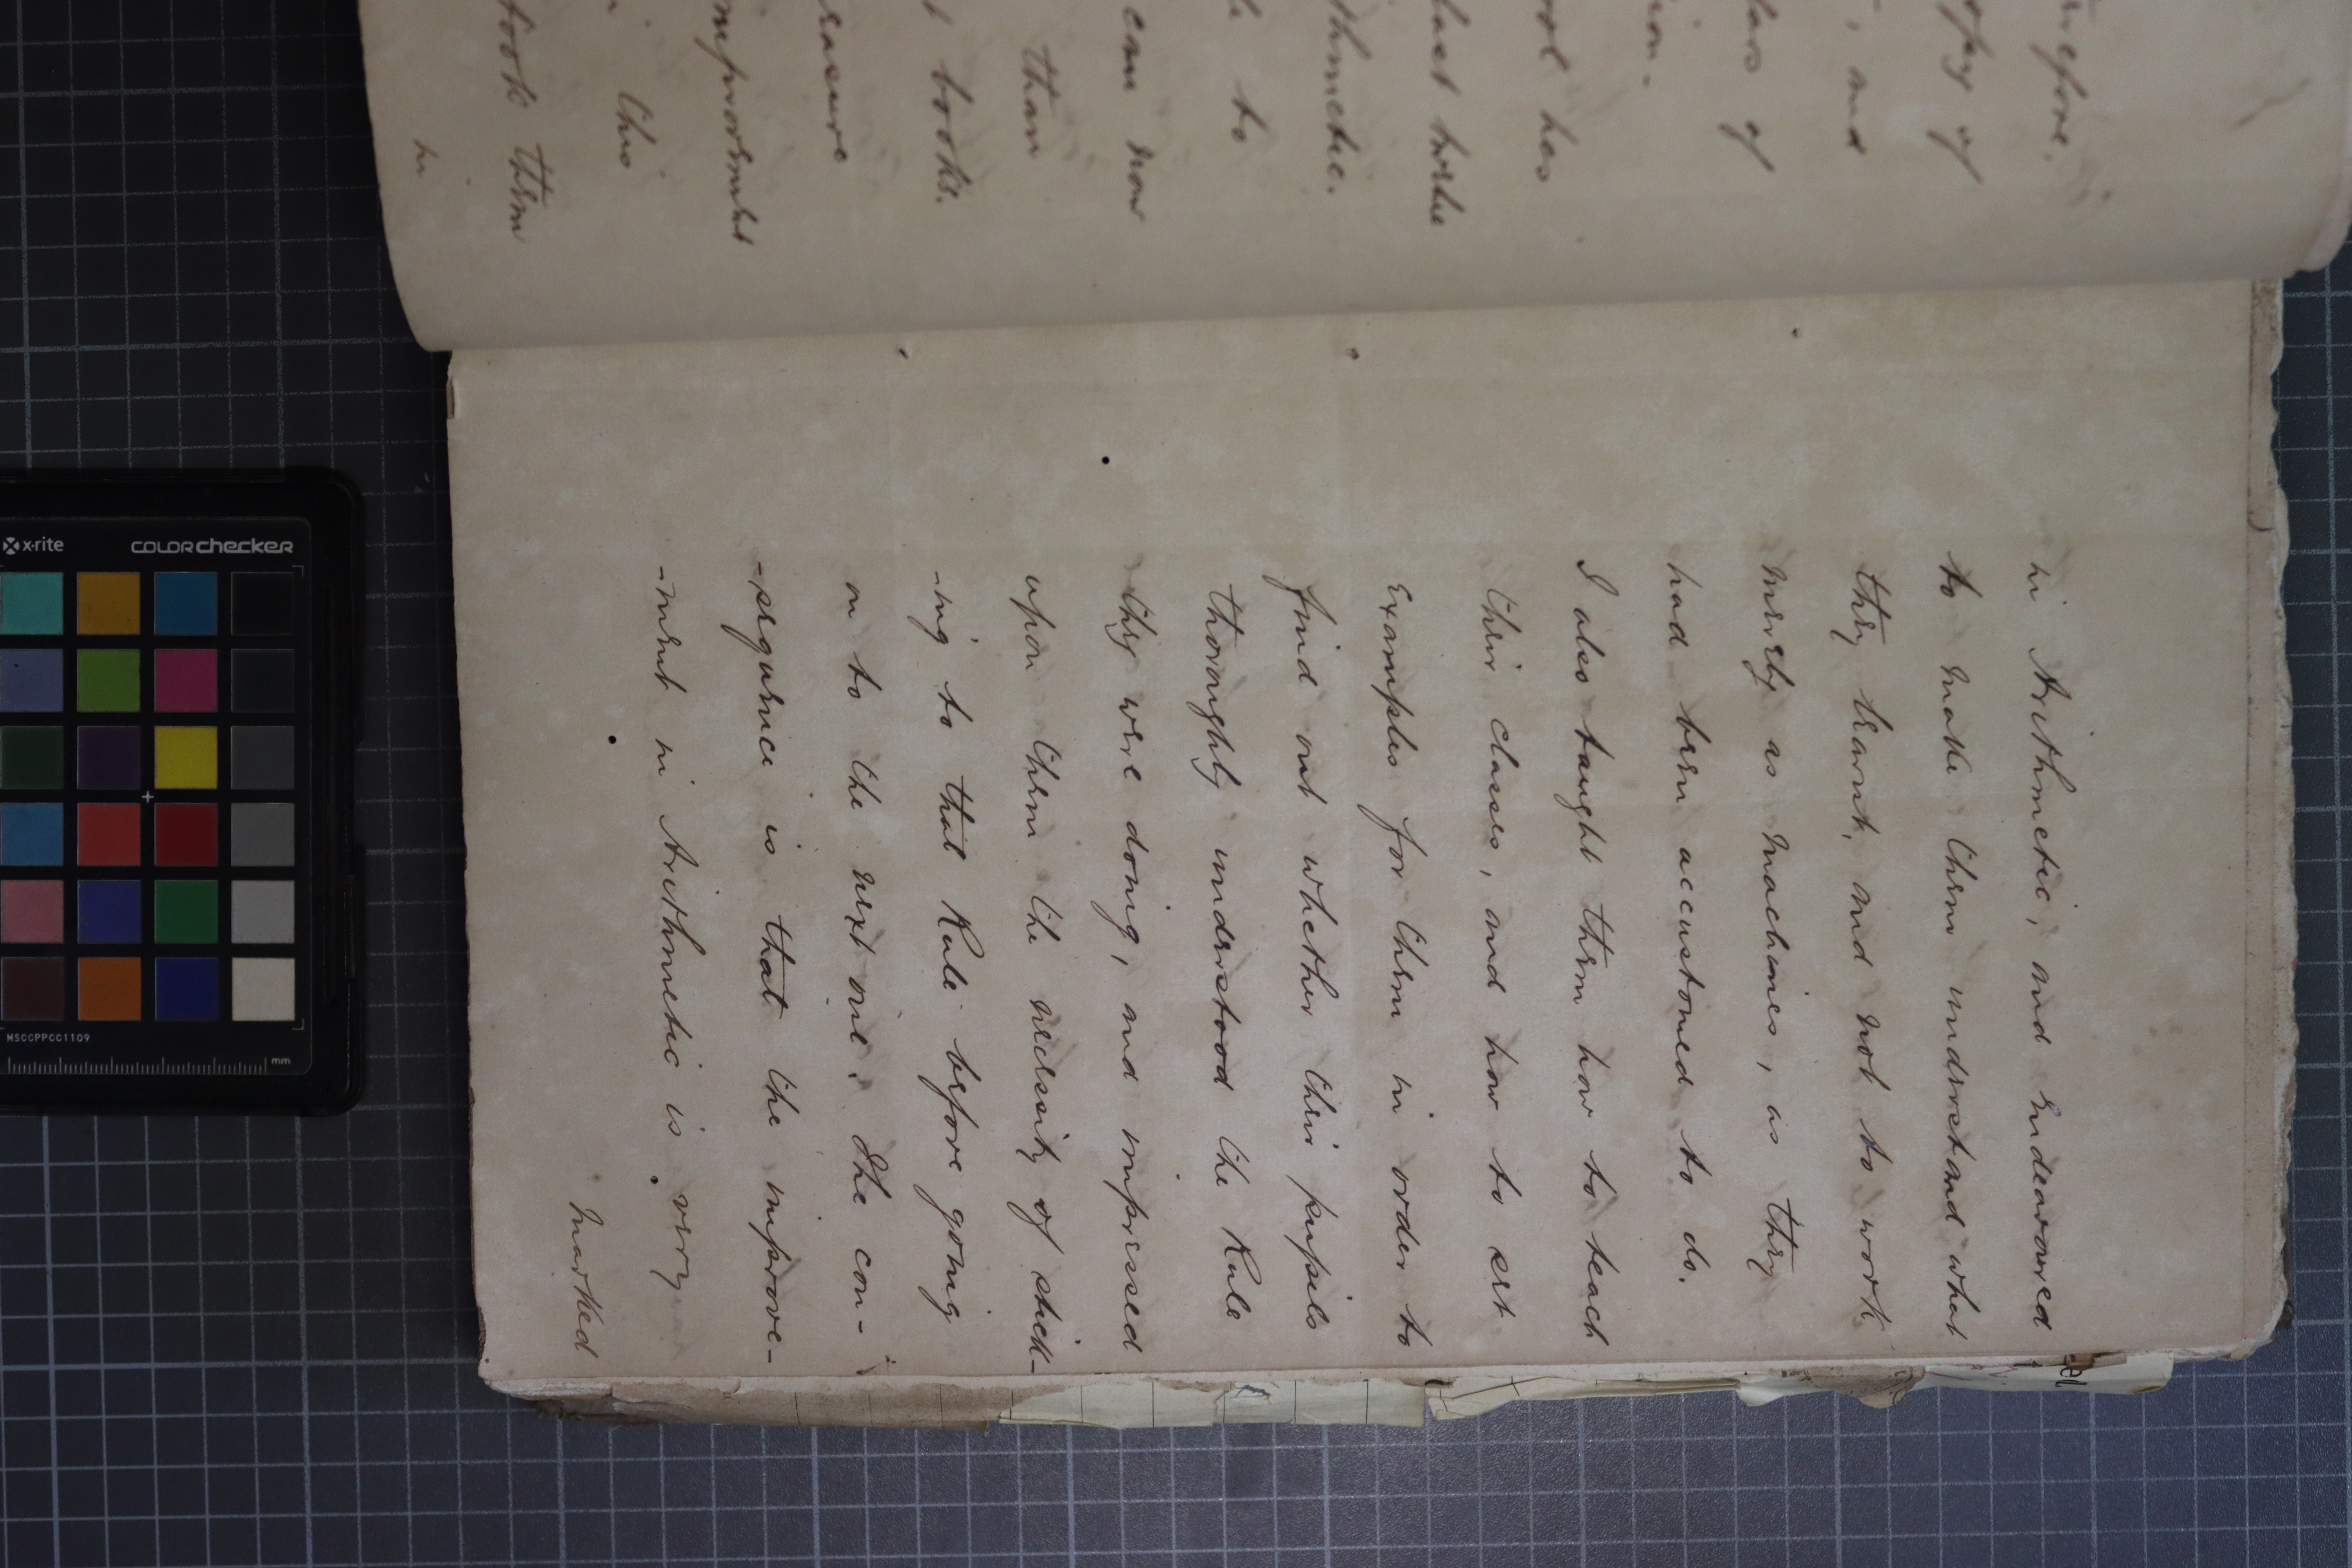 in Arithmetic, and endeavored
to make them understand what
they learnt, and not to work
merely as machines, as they
had been accustomed to do.
I also taught them how to teach
their classes, and how to set
examples for them in order to
find out whether their pupils
thoroughly understood the Rule
they were doing, and impressed
upon them the necessity of stick-
-ing to that Rule before going
on to the next one. The con-
-sequence is that the improve-
-ment in Arithmetic is very
marked
opy of
, and
lass of
ion.
ool has
last twelve
thmetic.
to
can now
than
t books.
rasure
mprovement
the
took them
in
x-rite
colorchecker
MSCCPPCC1109
mm